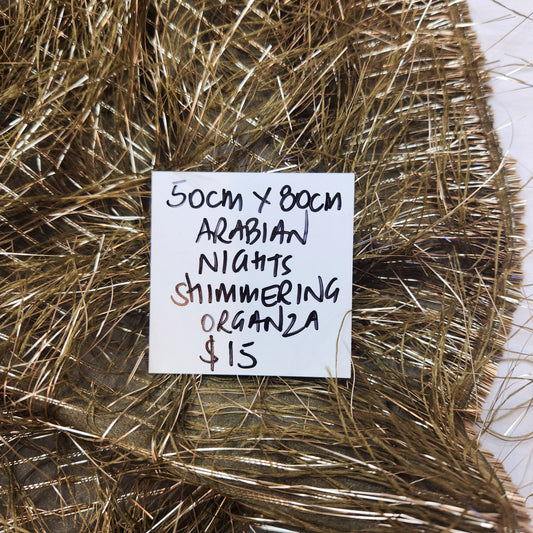 50cm x 80cm
ARABIAN
NIGHTS
SHIMMERING
ORGANZA
$15